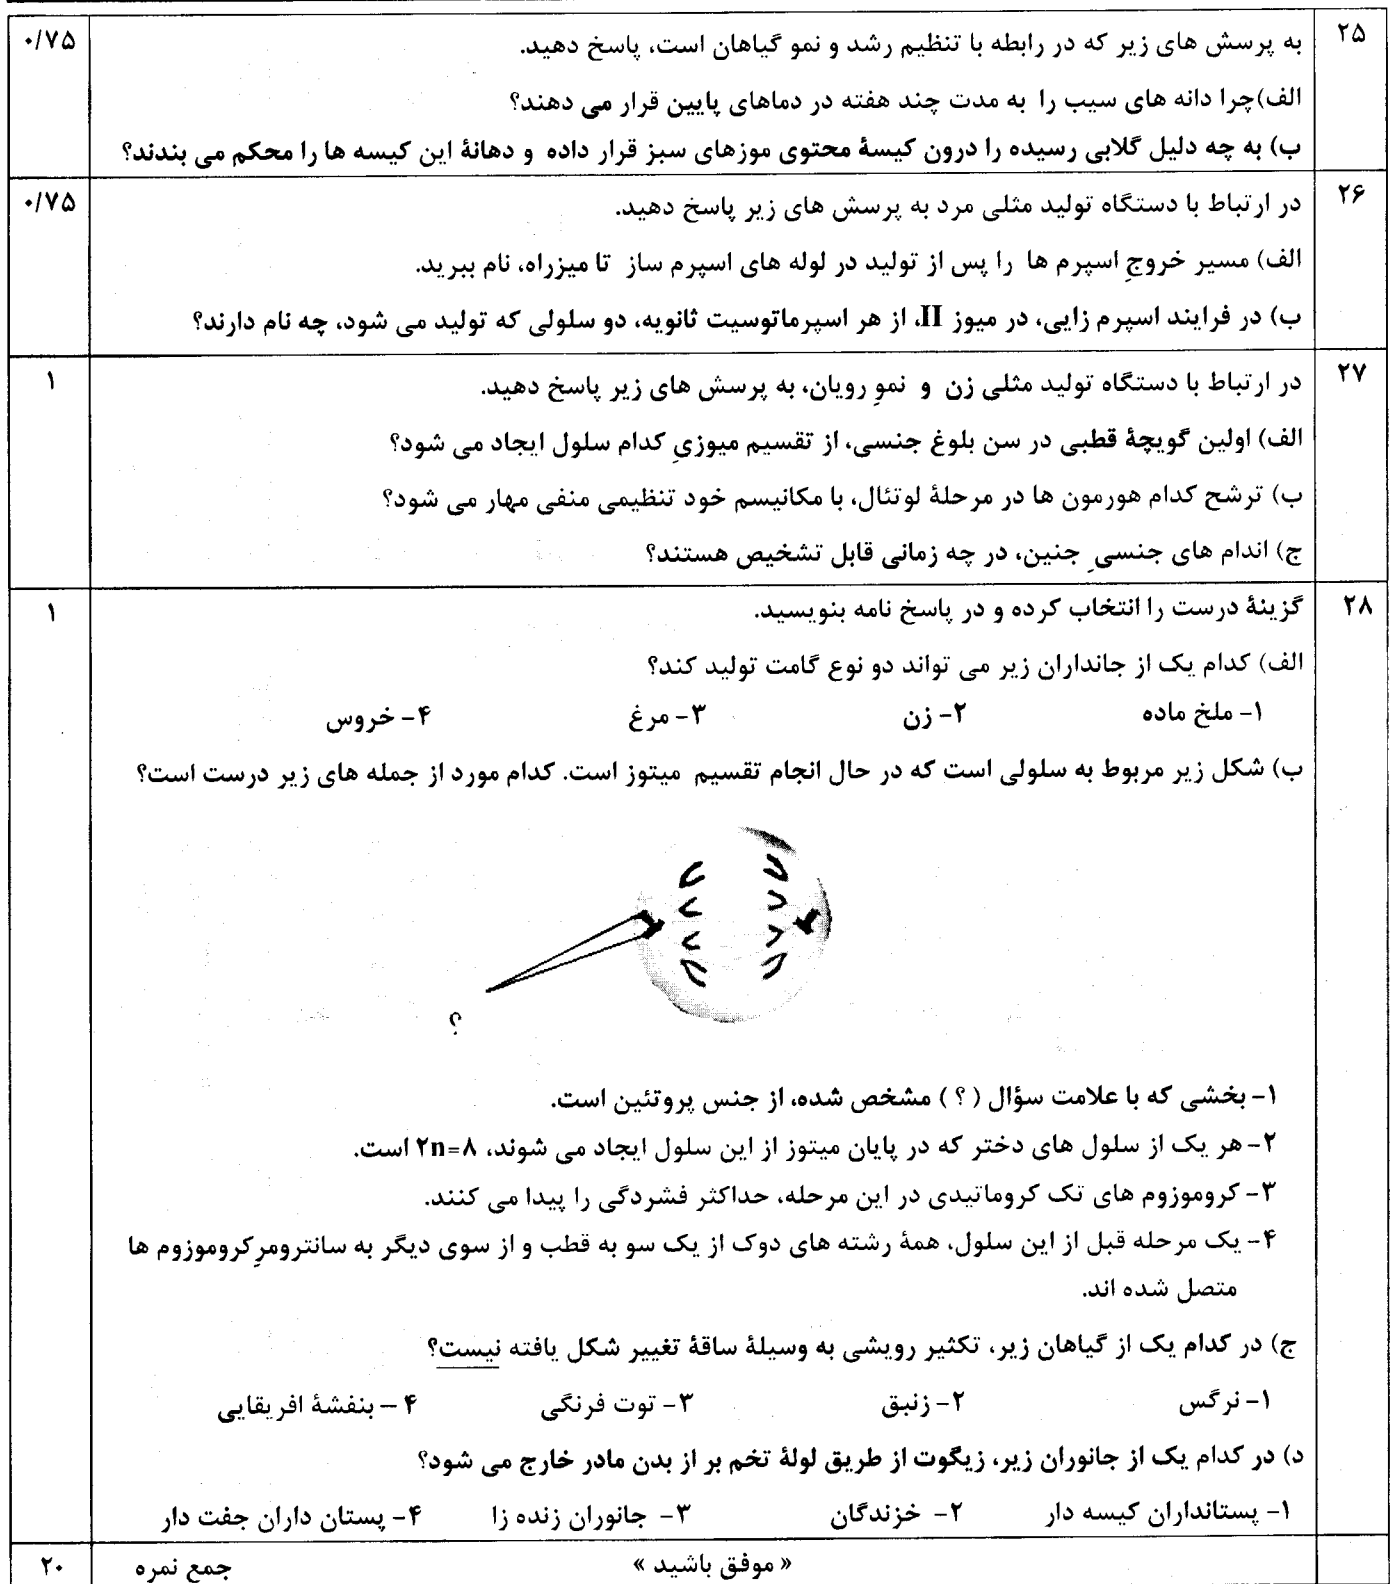 ۲۵ به پرسش های زیر که در رابطه با تنظیم رشد و نمو گیاهان است، پاسخ دهید. ۰/۷۵
الف)چرا دانه های سیب را به مدت چند هفته در دماهای پایین قرار می دهند؟
ب) به چه دلیل گلابی رسیده را درون کیسهٔ محتوی موزهای سبز قرار داده و دهانهٔ این کیسه ها را محکم می بندند؟
۲۶ در ارتباط با دستگاه تولید مثلی مرد به پرسش های زیر پاسخ دهید. ۰/۷۵
الف) مسیر خروجِ اسپرم ها را پس از تولید در لوله های اسپرم ساز تا میزراه، نام ببرید.
ب) در فرایند اسپرم زایی، در میوز II، از هر اسپرماتوسیت ثانویه، دو سلولی که تولید می شود، چه نام دارند؟
۲۷ در ارتباط با دستگاه تولید مثلی زن و نموِ رویان، به پرسش های زیر پاسخ دهید. ۱
الف) اولین گویچهٔ قطبی در سن بلوغ جنسی، از تقسیم میوزیِ کدام سلول ایجاد می شود؟
ب) ترشح کدام هورمون ها در مرحلهٔ لوتئال، با مکانیسم خود تنظیمی منفی مهار می شود؟
ج) اندام های جنسیِ جنین، در چه زمانی قابل تشخیص هستند؟
۲۸ گزینهٔ درست را انتخاب کرده و در پاسخ نامه بنویسید. ۱
الف) کدام یک از جانداران زیر می تواند دو نوع گامت تولید کند؟
۱- ملخ ماده ۲- زن ۳- مرغ ۴- خروس
ب) شکل زیر مربوط به سلولی است که در حال انجام تقسیم میتوز است. کدام مورد از جمله های زیر درست است؟
؟
۱- بخشی که با علامت سؤال ( ؟ ) مشخص شده، از جنس پروتئین است.
۲- هر یک از سلول های دختر که در پایان میتوز از این سلول ایجاد می شوند، ۲n=۸ است.
۳- کروموزوم های تک کروماتیدی در این مرحله، حداکثر فشردگی را پیدا می کنند.
۴- یک مرحله قبل از این سلول، همهٔ رشته های دوک از یک سو به قطب و از سوی دیگر به سانترومرِکروموزوم ها
متصل شده اند.
ج) در کدام یک از گیاهان زیر، تکثیر رویشی به وسیلهٔ ساقهٔ تغییر شکل یافته نیست؟
۱- نرگس ۲- زنبق ۳- توت فرنگی ۴- بنفشهٔ افریقایی
د) در کدام یک از جانوران زیر، زیگوت از طریق لولهٔ تخم بر از بدن مادر خارج می شود؟
۱- پستانداران کیسه دار ۲- خزندگان ۳- جانوران زنده زا ۴- پستان داران جفت دار
« موفق باشید » جمع نمره ۲۰